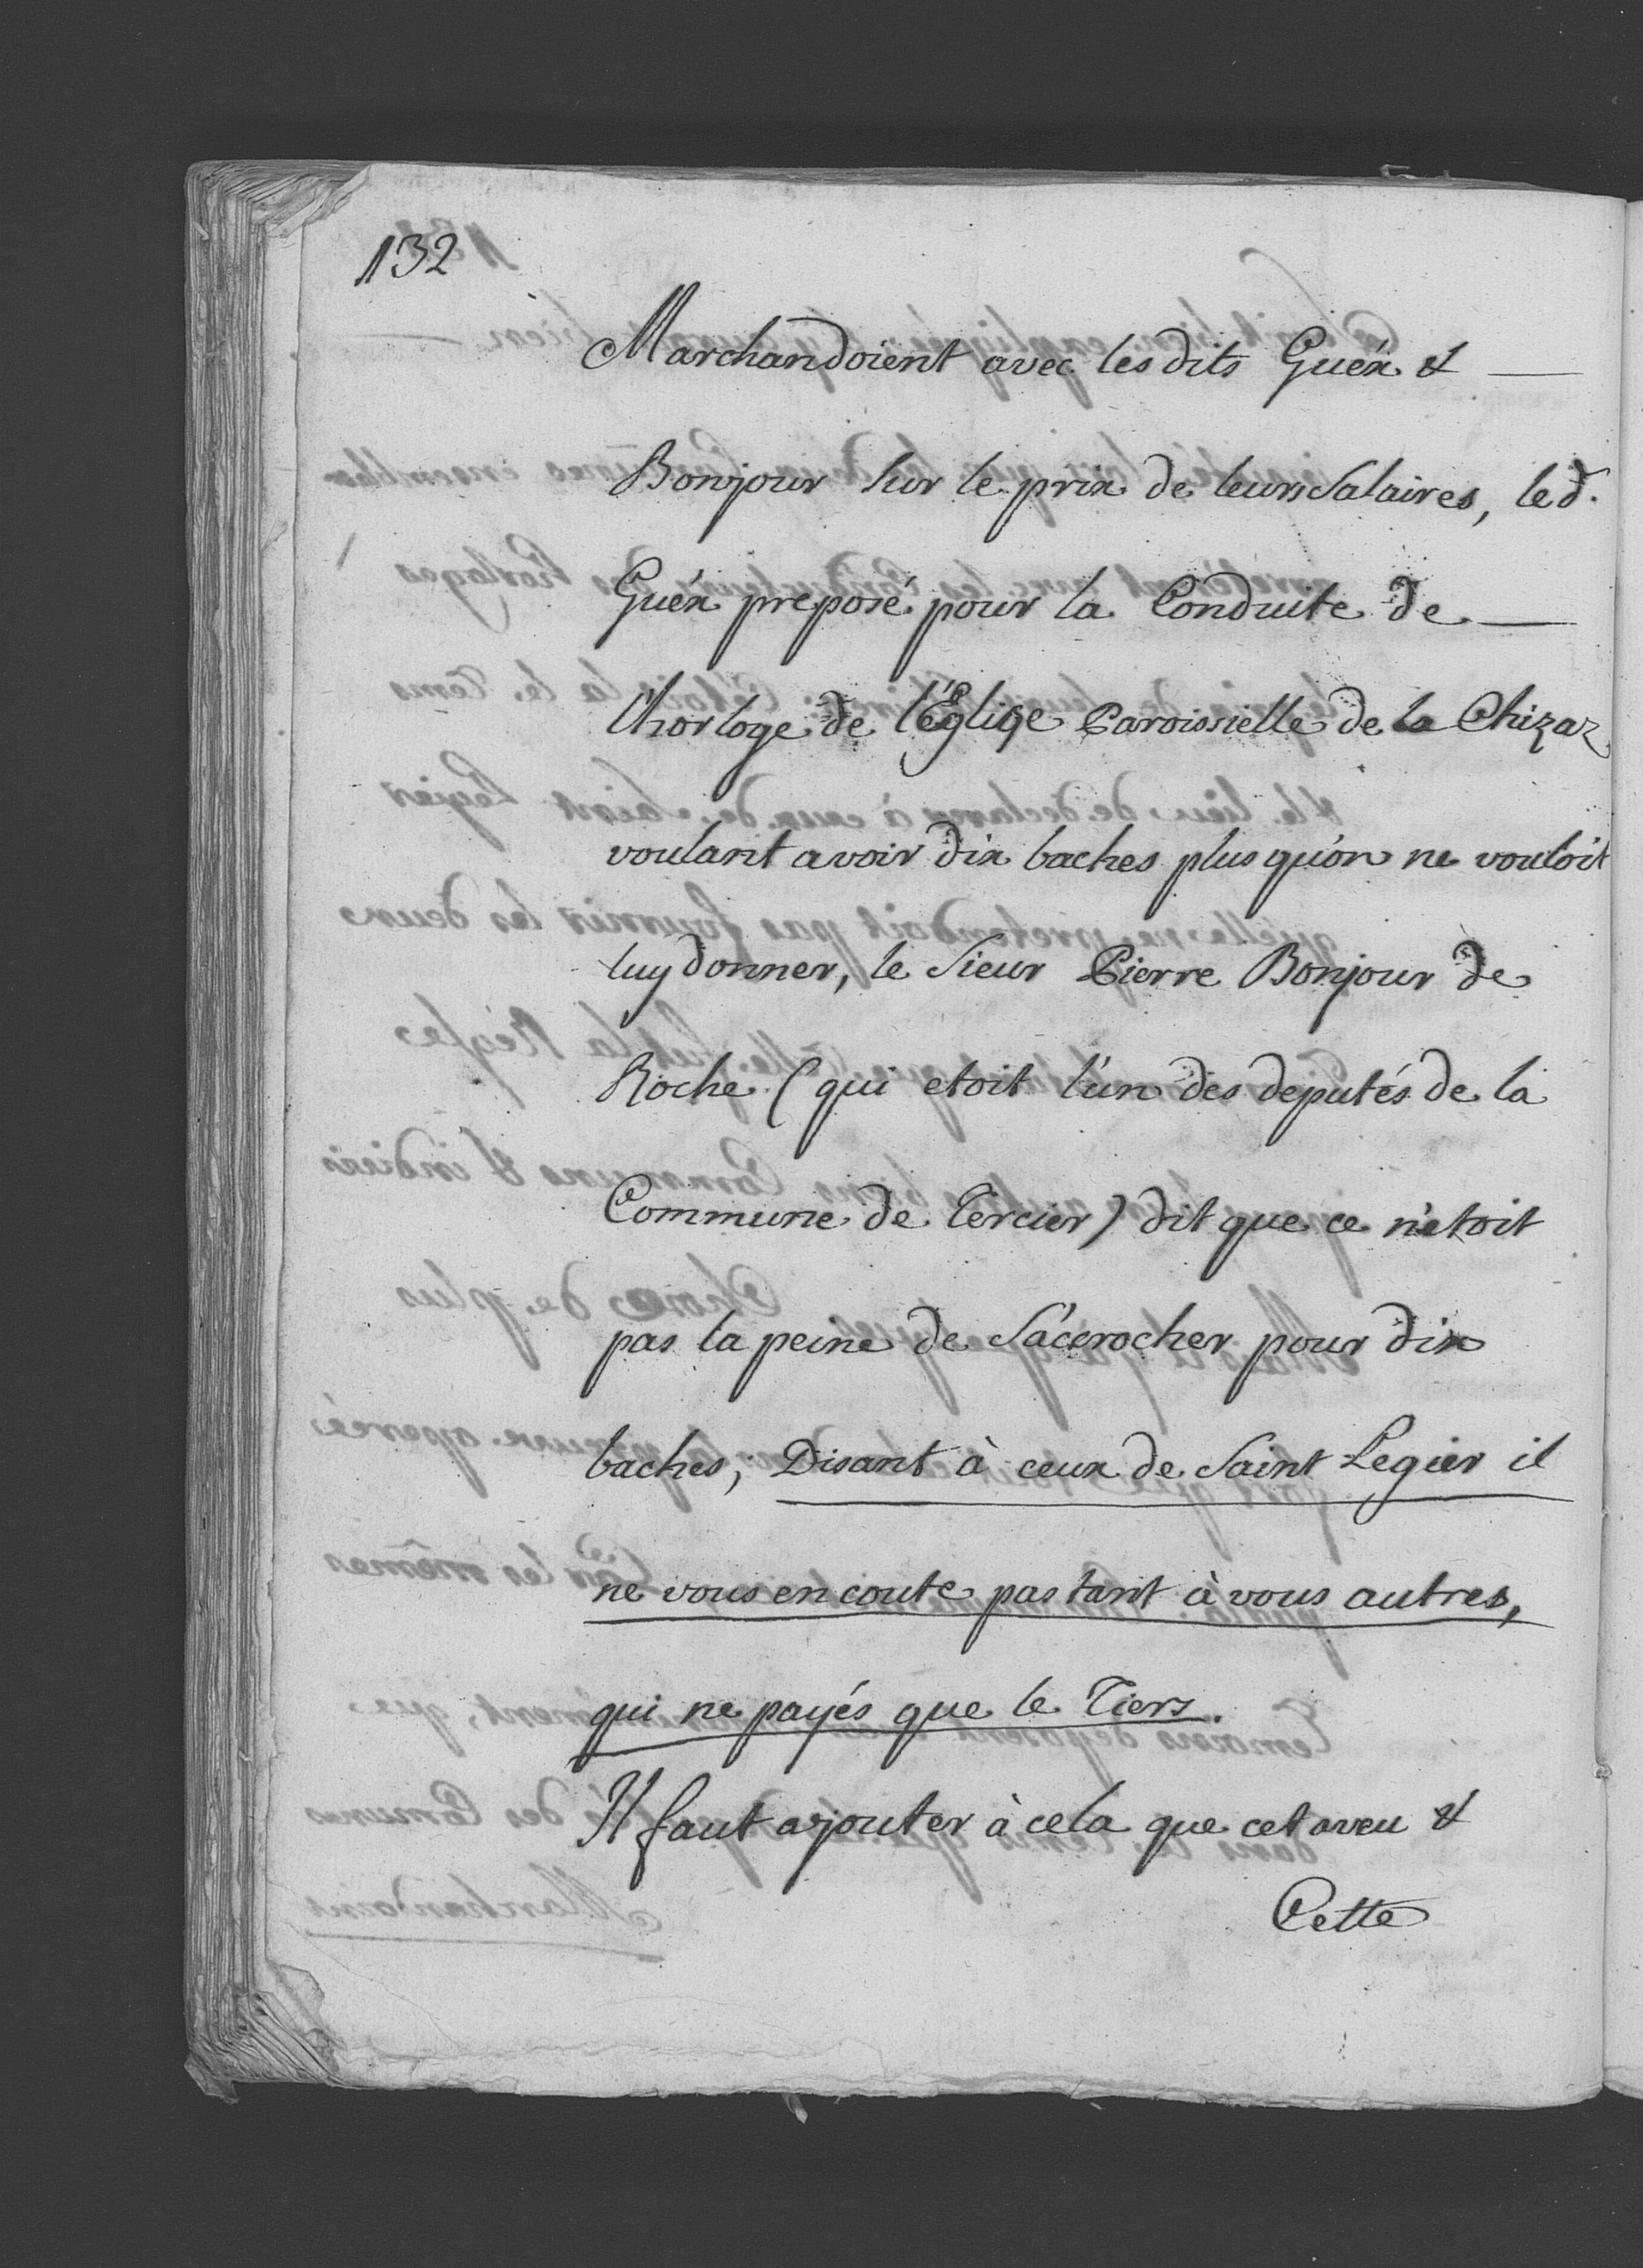 132
Marchandoient avec les dits Guéx &
Bonjour sur le prix de leurs Salaires, led.
Guéx preposé pour la Conduite de
l'horloge de l'Eglise Paroissielle de la Chizaz
voulant avoir dix baches plus qu'on ne vouloit
luy donner, le Sieur Pierre Bonjour de
Roche (qui etoit l'un des deputés de la
Commune de Tercier) dit que ce n'etoit
pas la peine de S'accrocher pour dix
baches; Disant à ceux de Saint Legier il
ne vous en coute pas tant à vous autres,
qui ne payés que le Tiers.
Il faut ajouter à cela que cet aveu &
Cette